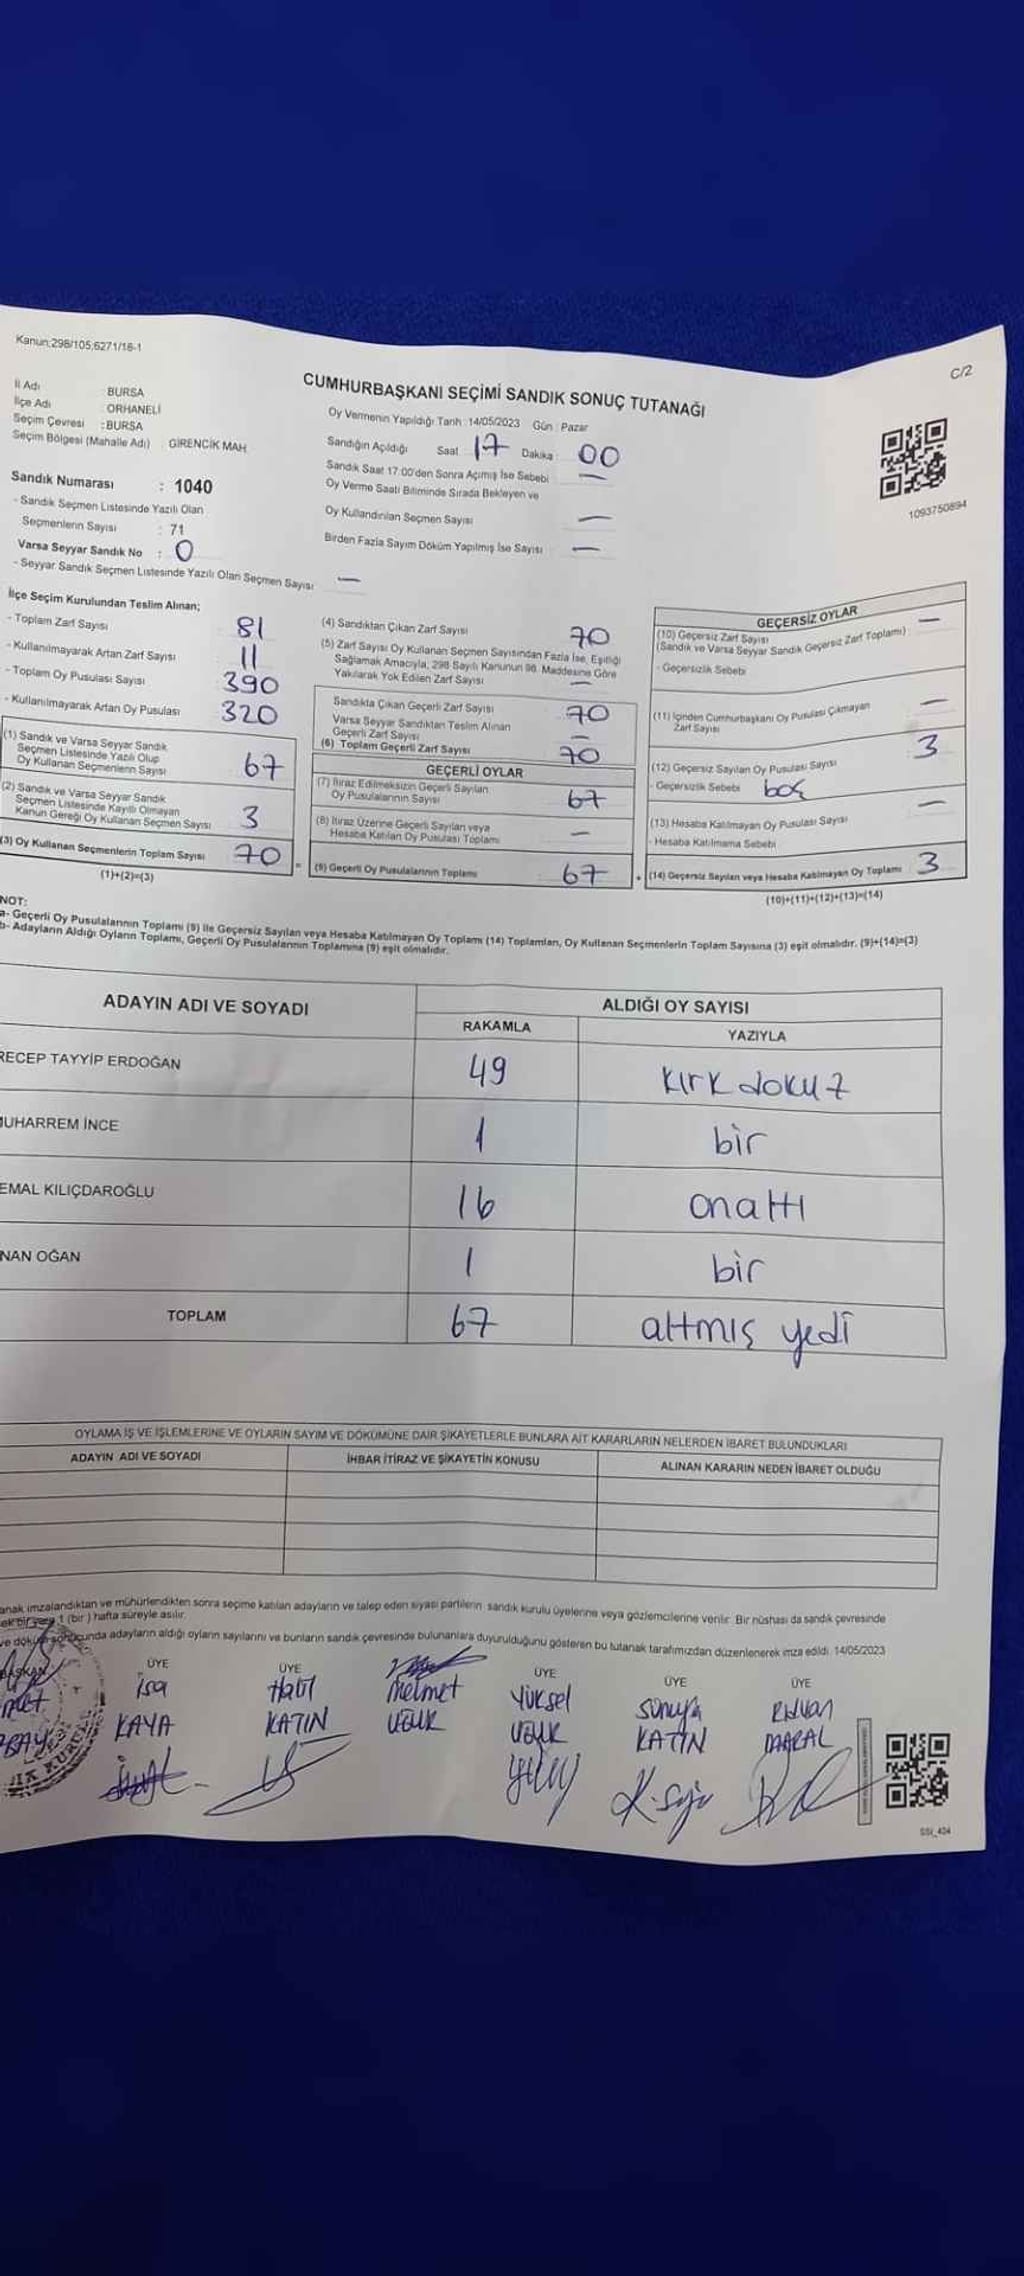 Kanun:298/105;6271/18-1
C/2
CUMHURBAŞKANI SEÇİMİ SANDIK SONUÇ TUTANAĞI
İl Adı : BURSA
İlçe Adı : ORHANELİ
Seçim Çevresi : BURSA
Seçim Bölgesi (Mahalle Adı) : GİRENCİK MAH.
Oy Vermenin Yapıldığı Tarih : 14/05/2023 Gün : Pazar
Sandığın Açıldığı Saat 17 Dakika : 00
Sandık Saat 17:00'den Sonra Açımış İse Sebebi : —
Oy Verme Saati Bitiminde Sırada Bekleyen ve
Oy Kullandırılan Seçmen Sayısı —
Birden Fazla Sayım Döküm Yapılmış İse Sayısı : —
1093750894
Sandık Numarası : 1040
- Sandık Seçmen Listesinde Yazılı Olan
Seçmenlerin Sayısı : 71
Varsa Seyyar Sandık No : 0
- Seyyar Sandık Seçmen Listesinde Yazılı Olan Seçmen Sayısı —
İlçe Seçim Kurulundan Teslim Alınan;
- Toplam Zarf Sayısı 81
- Kullanılmayarak Artan Zarf Sayısı 11
- Toplam Oy Pusulası Sayısı 390
- Kullanılmayarak Artan Oy Pusulası 320
(1) Sandık ve Varsa Seyyar Sandık
Seçmen Listesinde Yazılı Olup
Oy Kullanan Seçmenlerin Sayısı 67
(2) Sandık ve Varsa Seyyar Sandık
Seçmen Listesinde Kayıtlı Olmayan
Kanun Gereği Oy Kullanan Seçmen Sayısı 3
(3) Oy Kullanan Seçmenlerin Toplam Sayısı 70
(1)+(2)=(3)
(4) Sandıktan Çıkan Zarf Sayısı 70
(5) Zarf Sayısı Oy Kullanan Seçmen Sayısından Fazla İse, Eşitliği
Sağlamak Amacıyla, 298 Sayılı Kanunun 98. Maddesine Göre
Yakılarak Yok Edilen Zarf Sayısı —
Sandıkta Çıkan Geçerli Zarf Sayısı 70
Varsa Seyyar Sandıktan Teslim Alınan
Geçerli Zarf Sayısı —
(6) Toplam Geçerli Zarf Sayısı 70
GEÇERLİ OYLAR
(7) İtiraz Edilmeksizin Geçerli Sayılan
Oy Pusulalarının Sayısı 67
(8) İtiraz Üzerine Geçerli Sayılan veya
Hesaba Katılan Oy Pusulası Toplamı —
= (9) Geçerli Oy Pusulalarının Toplamı 67
GEÇERSİZ OYLAR
(10) Geçersiz Zarf Sayısı —
(Sandık ve Varsa Seyyar Sandık Geçersiz Zarf Toplamı) :
- Geçersizlik Sebebi
(11) İçinden Cumhurbaşkanı Oy Pusulası Çıkmayan —
Zarf Sayısı
(12) Geçersiz Sayılan Oy Pusulası Sayısı 3
- Geçersizlik Sebebi boş
(13) Hesaba Katılmayan Oy Pusulası Sayısı —
- Hesaba Katılmama Sebebi
+ (14) Geçersiz Sayılan veya Hesaba Katılmayan Oy Toplamı 3
(10)+(11)+(12)+(13)=(14)
NOT:
a- Geçerli Oy Pusulalarının Toplamı (9) ile Geçersiz Sayılan veya Hesaba Katılmayan Oy Toplamı (14) Toplamları, Oy Kullanan Seçmenlerin Toplam Sayısına (3) eşit olmalıdır. (9)+(14)=(3)
b- Adayların Aldığı Oyların Toplamı, Geçerli Oy Pusulalarının Toplamına (9) eşit olmalıdır.
ADAYIN ADI VE SOYADI ALDIĞI OY SAYISI
RAKAMLA YAZIYLA
RECEP TAYYİP ERDOĞAN 49 kırk dokuz
MUHARREM İNCE 1 bir
EMAL KILIÇDAROĞLU 16 onaltı
NAN OĞAN 1 bir
TOPLAM 67 altmış yedi
OYLAMA İŞ VE İŞLEMLERİNE VE OYLARIN SAYIM VE DÖKÜMÜNE DAİR ŞİKAYETLERLE BUNLARA AİT KARARLARIN NELERDEN İBARET BULUNDUKLARI
ADAYIN ADI VE SOYADI İHBAR İTİRAZ VE ŞİKAYETİN KONUSU ALINAN KARARIN NEDEN İBARET OLDUĞU
anak imzalandıktan ve mühürlendikten sonra seçime katılan adayların ve talep eden siyasi partilerin sandık kurulu üyelerine veya gözlemcilerine verilir. Bir nüshası da sandık çevresinde
1 (bir) hafta süreyle asılır.
sonucunda adayların aldığı oyların sayılarını ve bunların sandık çevresinde bulunanlara duyurulduğunu gösteren bu tutanak tarafımızdan düzenlenerek imza edildi. 14/05/2023
BAŞKAN ÜYE ÜYE ÜYE ÜYE ÜYE
İsa Halil Mehmet Yüksel Süreyya Rıdvan
KAYA KATIN UĞUR UĞUR KATIN DAĞRAL
SSI_404